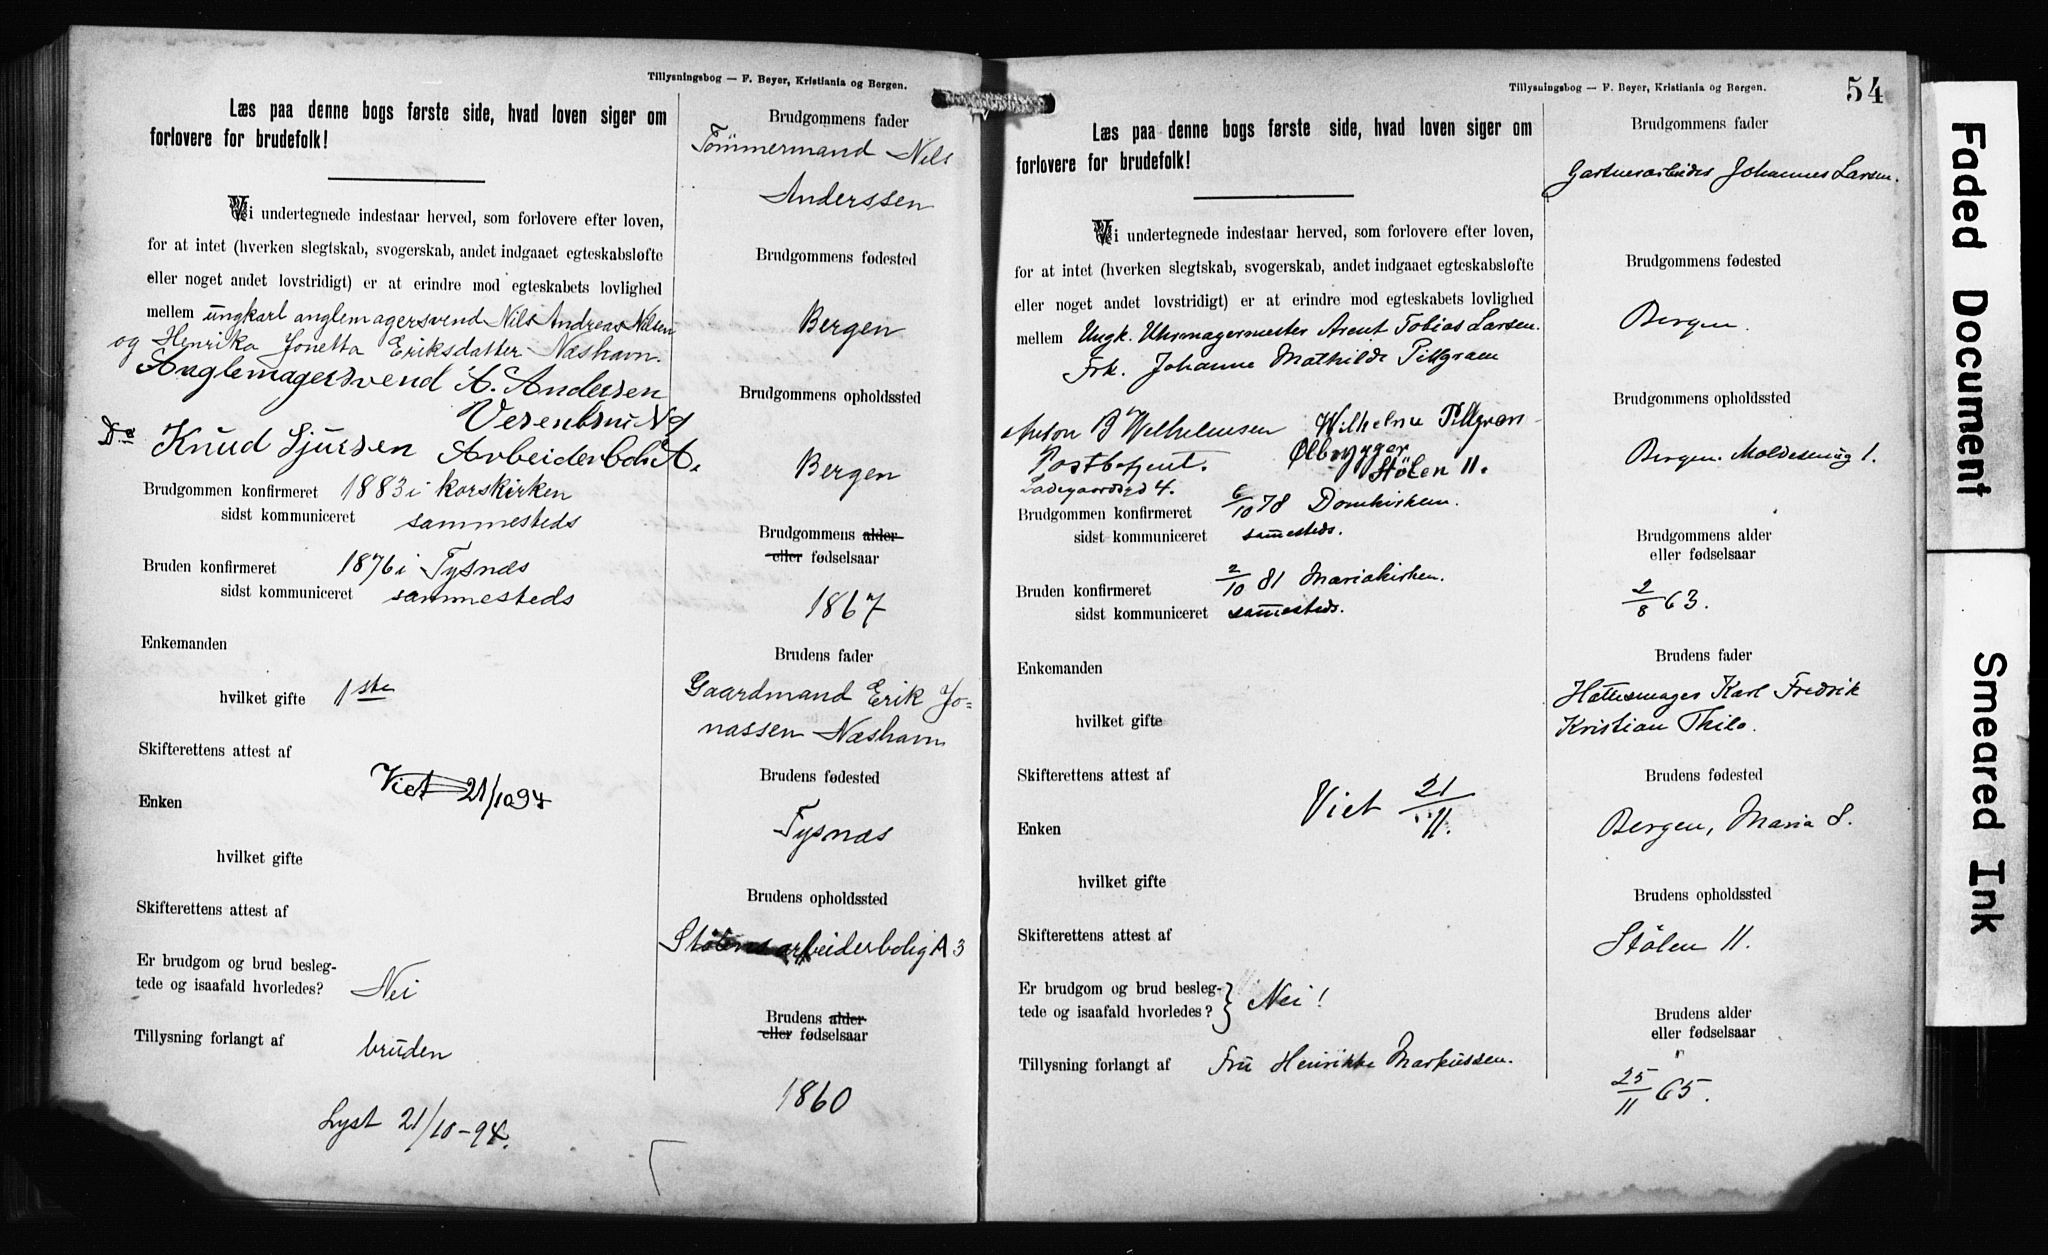 Tillysningsbog — F. Beyer, Kristiania og Bergen.
Læs paa denne bogs første side, hvad loven siger om
forlovere for brudefolk!
Vi undertegnede indestaar herved, som forlovere efter loven,
for at intet (hverken slegtskab, svogerskab, andet indgaaet egteskabsløfte
eller noget andet lovstridigt) er at erindre mod egteskabets lovlighed
mellem ungkarl anglemagersvend Nils Andreas Nilsen
og Henrika Jonetta Eriksdatter Næshavn.
Anglemagersvend A. Andersen
Knud Sjursen Arbeiderbol: A.
Brudgommen konfirmeret 1883 i korskirken
sidst kommuniceret sammesteds
Bruden konfirmeret 1876 i Tysnæs
sidst kommuniceret sammesteds
Enkemanden
hvilket gifte 1ste
Skifterettens attest af
Viet 21/10 94
Enken
hvilket gifte
Skifterettens attest af
Er brudgom og brud besleg-
tede og isaafald hvorledes? Nei
Tillysning forlangt af bruden
Lyst 21/10-94.
Brudgommens fader
Tömmermand Nils
Anderssen
Brudgommens fødested
Bergen
Brudgommens opholdssted
Bergen
Brudgommens alder
eller fødselsaar
1867
Brudens fader
Gaardmand Erik Jo=
nassen Næshavn
Brudens fødested
Tysnæs
Brudens opholdssted
Stölens arbeiderbolig A 3
Brudens alder
eller fødselsaar
1860
Tillysningsbog — F. Beyer, Kristiania og Bergen.
54
Læs paa denne bogs første side, hvad loven siger om
forlovere for brudefolk!
Vi undertegnede indestaar herved, som forlovere efter loven,
for at intet (hverken slegtskab, svogerskab, andet indgaaet egteskabsløfte
eller noget andet lovstridigt) er at erindre mod egteskabets lovlighed
mellem Ungk. Uhrmagermester Arent Tobias Larsen.
Frk. Johanne Mathilde Pillgram
Anton B Wilhelmsen
Postbetjent.
Ladegaardsgd 4.
Wilhelm Pillgram
Ølbrygger
Stölen 11.
Brudgommen konfirmeret 6/10 78 Domkirken.
sidst kommuniceret sammesteds.
Bruden konfirmeret 2/10 81 Mariakirken.
sidst kommuniceret sammesteds.
Enkemanden
hvilket gifte
Skifterettens attest af
Viet 21/11.
Enken
hvilket gifte
Skifterettens attest af
Er brudgom og brud besleg-
tede og isaafald hvorledes? Nei!
Tillysning forlangt af Fru Henrikke Markussen.
Brudgommens fader
Gartnerarbeider Johannes Larsen.
Brudgommens fødested
Bergen.
Brudgommens opholdssted
Bergen. Moldesmug 1.
Brudgommens alder
eller fødselsaar
2/8 63.
Brudens fader
Hattemager Karl Fredrik
Kristian Thilo.
Brudens fødested
Bergen, Maria S.
Brudens opholdssted
Stölen 11.
Brudens alder
eller fødselsaar
25/11 65.
Faded Document
Smeared Ink